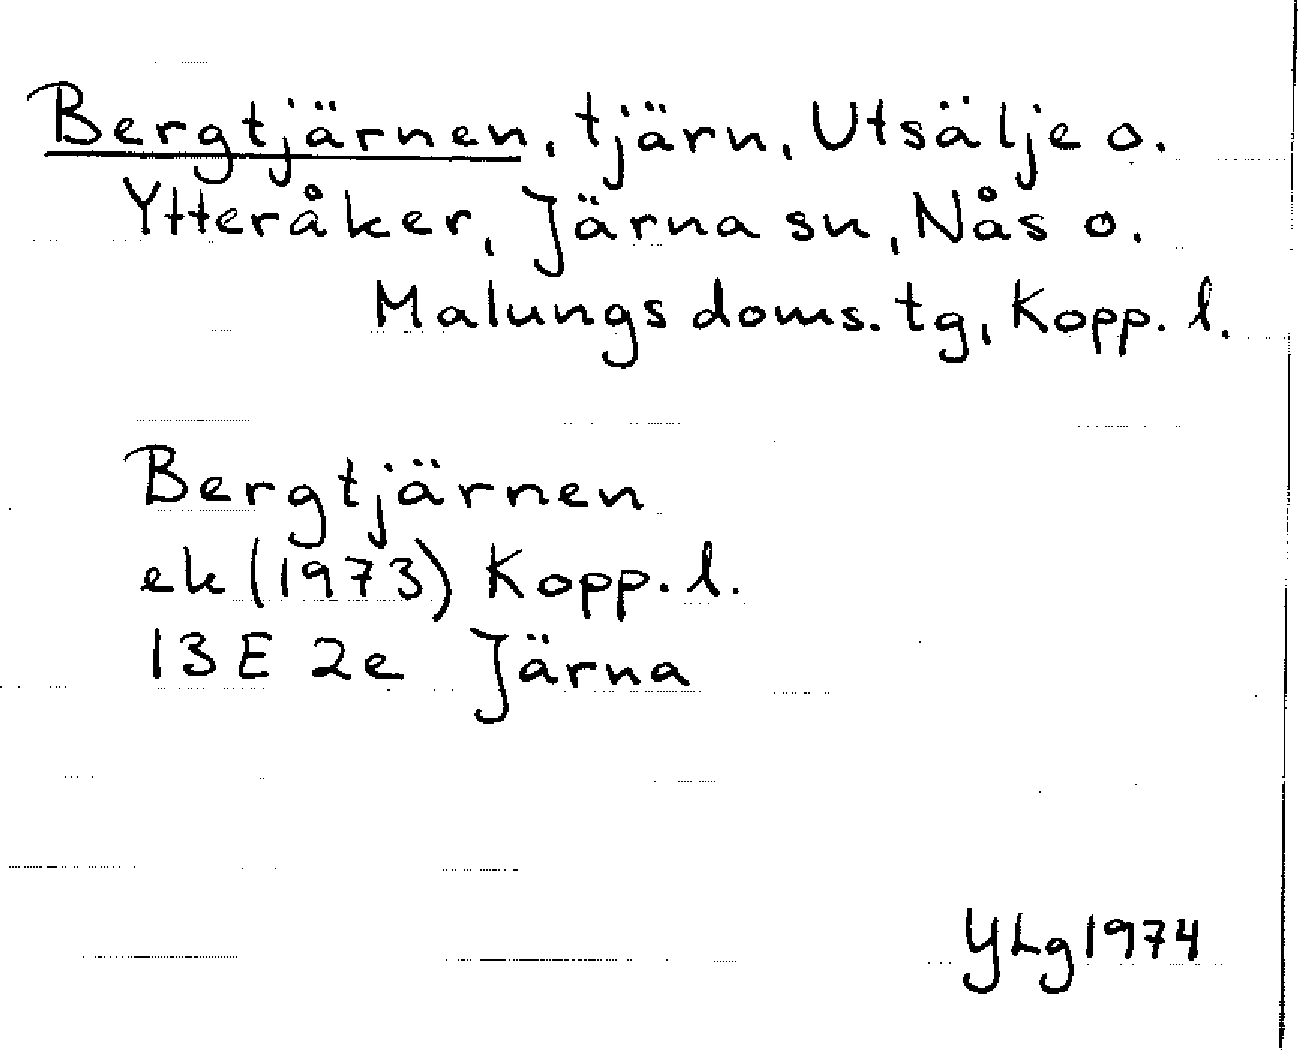 Bergtjärnen, tjärn, Utsälje o.
Ytteråker, Järna sn, Nås o.
Malungs doms. tg, Kopp. l.
Bergtjärnen
ek (1973) Kopp. l.
13 E 2e Järna
YLg 1974